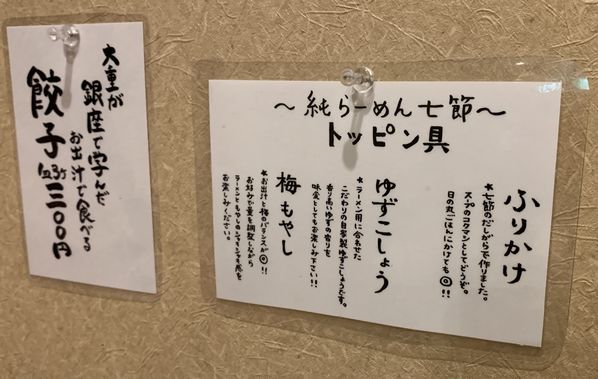 大重が
銀座で学んだ
お出汁で食べる
餃子
三〇〇円
〜純らーめん七節〜
トッピン具
ふりかけ
*七節のだしがらで作りました。
スープのコクマシとしてどうぞ。
日の丸ごはんにかけても◎!!
ゆずこしょう
*ラーメン用に合わせた
こだわりの自家製ゆずこしょうです。
香り高いゆずの香りを
味変としてもお楽しみ下さい!!
梅もやし
*お出汁と梅のバランスが◎!!
お好みで量を調整しながら
ラーメンともやしのシャキシャキ感を
お楽しみください。